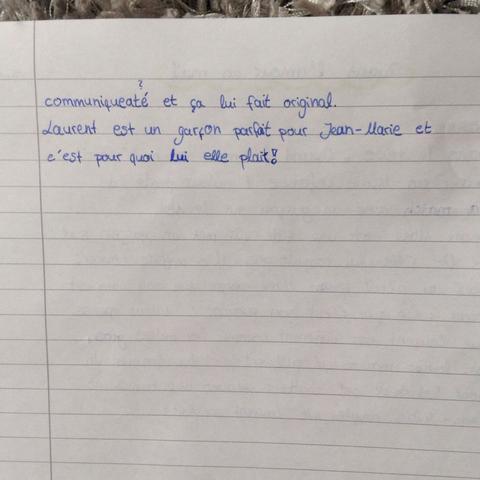 ?
communiqueaté et ça lui fait original.
Laurent est un garçon parfait pour Jean-Marie et
c'est pour quoi lui elle plait!